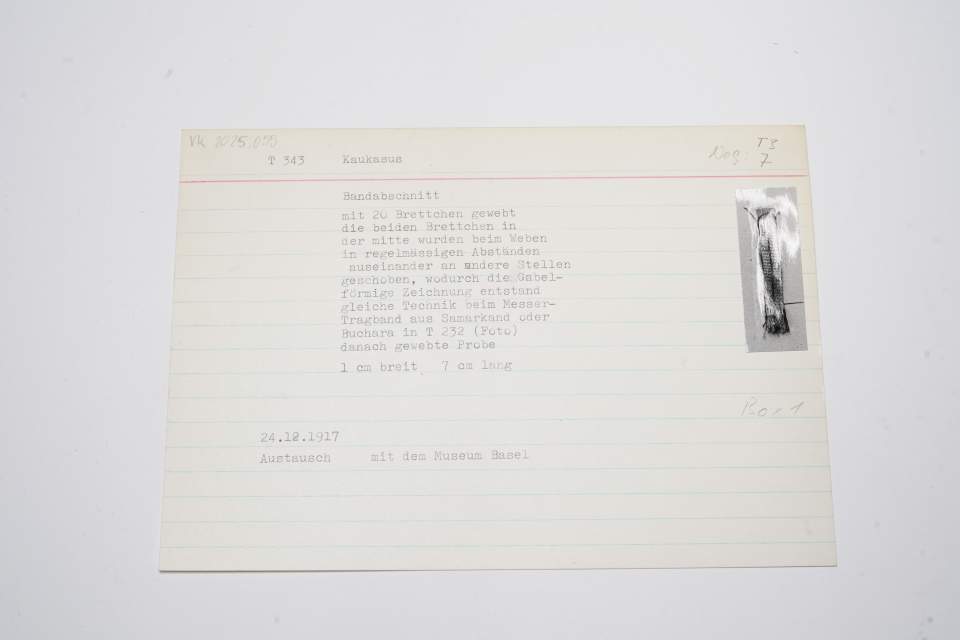 T 343 Kaukasus
Neg: T3
7
Bandabschnitt
mit 20 Brettchen gewebt
die beiden Brettchen in
der mitte wurden beim Weben
in regelmässigen Abständen
auseinander an andere Stellen
geschoben, wodurch die Gabel-
förmige Zeichnung entstand
gleiche Technik beim Messer-
Tragband aus Samarkand oder
Buchara in T 232 (Foto)
danach gewebte Probe
1 cm breit 7 cm lang
Box 1
24.12.1917
Austausch mit dem Museum Basel